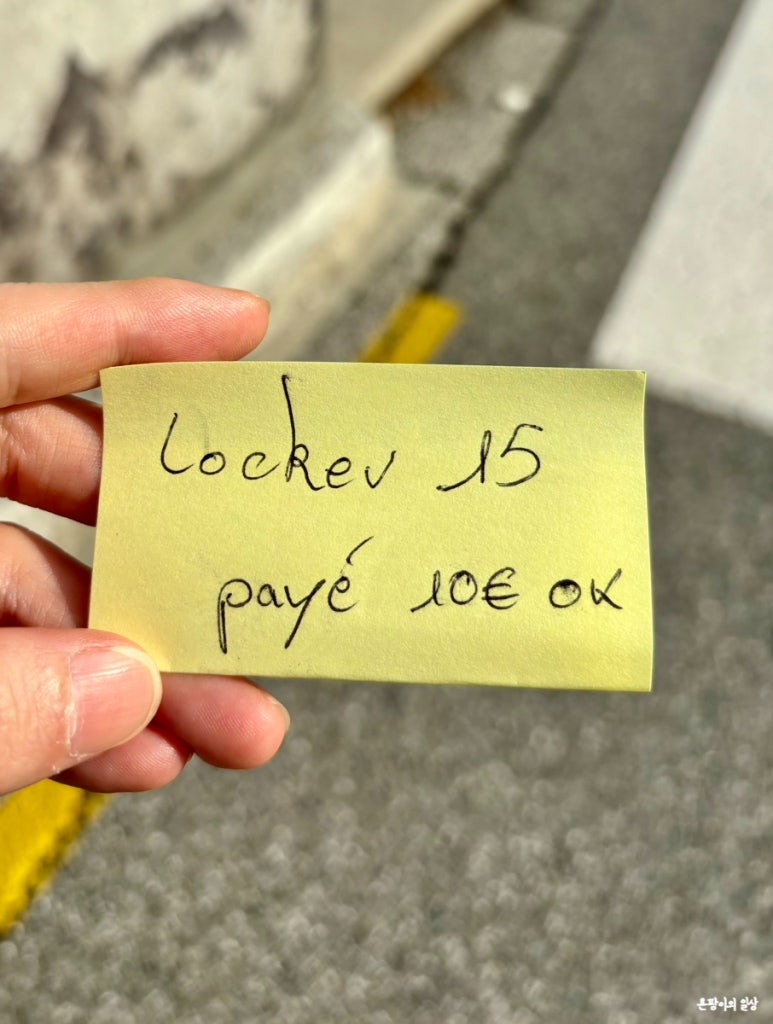 Locker 15
payé 10€ OK
은팡이의 일상